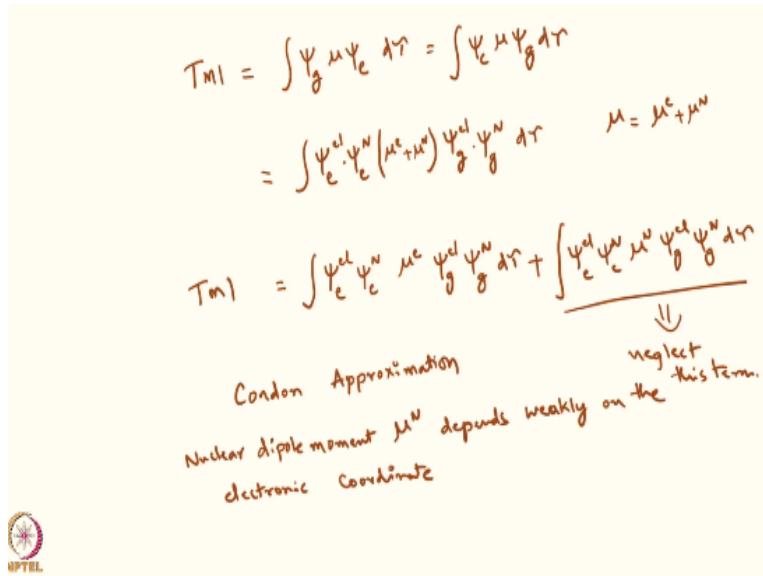 TMI = ∫ψ_g μ ψ_e dτ = ∫ψ_e μ ψ_g dτ
= ∫ψ_e^el . ψ_e^N (μ^e + μ^N) ψ_g^el . ψ_g^N dτ μ = μ^e + μ^N
TMI = ∫ψ_e^el ψ_e^N μ^e ψ_g^el ψ_g^N dτ + ∫ψ_e^el ψ_e^N μ^N ψ_g^el ψ_g^N dτ
⇓
neglect
this term.
Condon Approximation
Nuclear dipole moment μ^N depends weakly on the
electronic Coordinate
NPTEL